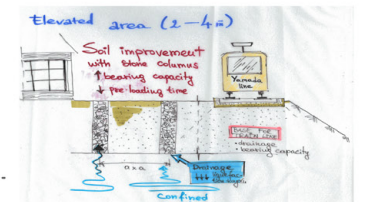 Elevated area (2-4m)
Soil improvement
with stone columns
↑ bearing capacity
↓ pre-loading time
Yamada
line
• drainage
• bearing capacity
a x a
Drainage
Confined